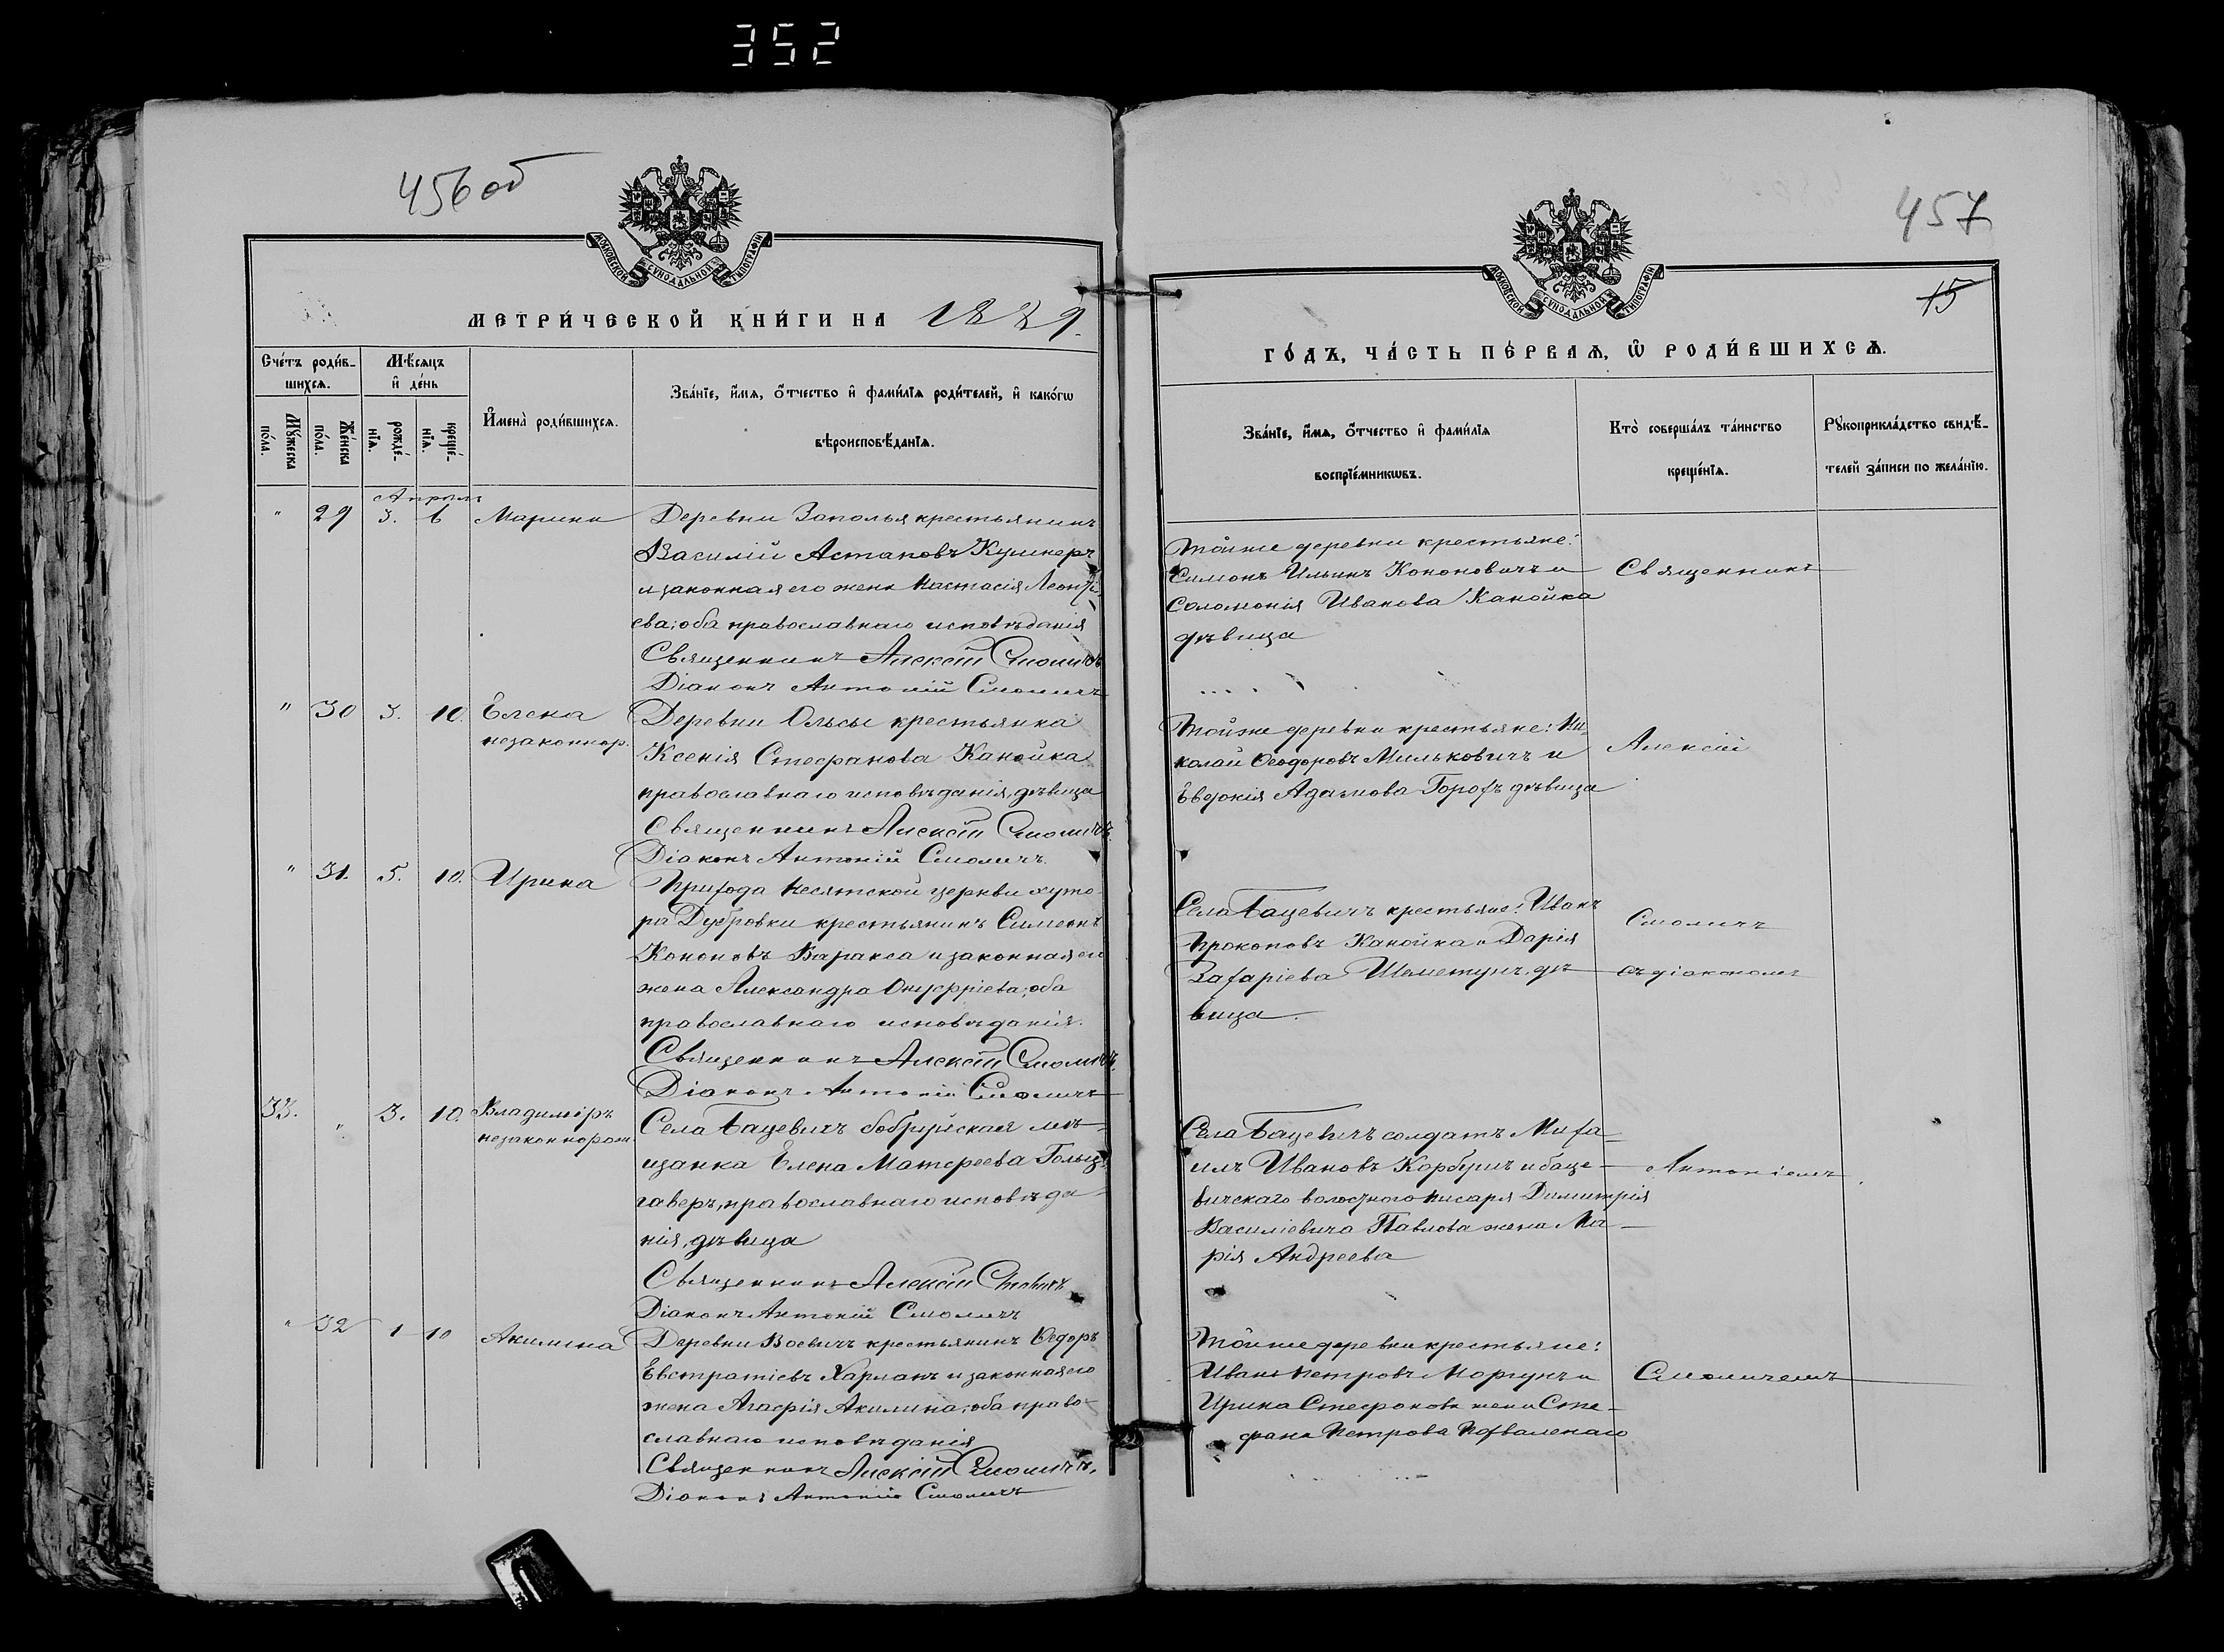 352
456 об
МОСКОВСКОЙ СУНОДАЛЬНОЙ ТИПОГРАФІИ
МЕТРИ́ЧЕСКОЙ КНИ́ГИ НА 1889.
Сче́тъ роди́в-
шихсѧ.
Мꙋ́жеска
по́ла.
Же́нска
по́ла.
Мѣ́сѧцъ
и҆ де́нь
рожде́-
нїѧ.
креще́-
нїѧ.
И҆мена̀ роди́вшихсѧ.
Зва́нїе, и҆́мѧ, ѻ҆́тчество и҆ фами́лїѧ роди́телей, и҆ како́гѡ
вѣроисповѣ́данїѧ.
Апрѣль
" 29 3. 6 Марина
Деревни Заполья крестьянинъ
Василій Астаповъ Кушнеръ
и законная его жена Настасія Леонті-
ева; оба православнаго исповѣданія
Священникъ Алексій Смоличъ
Діаконъ Антоній Смоличъ
" 30 3. 10. Елена
незаконнор.
Деревни Ольсы крестьянка
Ксенія Стефанова Канойка
православнаго исповѣданія, дѣвица
Священникъ Алексій Смоличъ
Діаконъ Антоній Смоличъ.
" 31. 5. 10. Ирина
Прихода Несятской церкви хуто-
ра Дубровки крестьянинъ Симеонъ
Кононовъ Варакса и законная его
жена Александра Онуфріева; оба
православнаго исповѣданія.
Священникъ Алексій Смоличъ.
Діаконъ Антоній Смоличъ
33. " 3. 10. Владиміръ
незаконнорож.
Села Бацевичъ бобруйская мѣ-
щанка Елена Матфеева
православнаго исповѣда-
нія, дѣвица
Священникъ Алексій Смоличъ
Діаконъ Антоній Смоличъ
" 32 1 10 Акилина
Деревни Воевичъ крестьянинъ Ѳедоръ
Евстратіевъ Харланъ и законная его
жена Агафія Акилина; оба право-
славнаго исповѣданія
Священникъ Алексій Смоличъ.
Діаконъ Антоній Смоличъ
457
15
МОСКОВСКОЙ СУНОДАЛЬНОЙ ТИПОГРАФІИ
ГО́ДЪ, ЧА́СТЬ ПЕ́РВАѦ, Ѡ҆ РОДИ́ВШИХСѦ.
Зва́нїе, и҆́мѧ, ѻ҆́тчество и҆ фами́лїѧ
воспрїе́мникѡвъ.
Кто̀ соверша́лъ та́инство
креще́нїѧ.
Рꙋкоприкла́дство свидѣ́-
телей за́писи по жела́нїю.
Тойже деревни крестьяне:
Симонъ Ильинъ Кононовичъ и
Соломонія Иванова Канойка
дѣвица
Священникъ
Тойже деревни крестьяне: Ни-
колай Ѳеодоровъ Мильковичъ и
Евдокія Адамова Горохъ дѣвица
Алексій
Села Бацевичъ крестьяне: Иванъ
Прокоповъ Канойка и Дарія
Захаріева Шеметунъ, дѣ-
вица.
Смоличъ
съ діакономъ
Села Бацевичъ солдатъ Миха-
илъ Ивановъ Корбутъ и баце-
вичскаго волостнаго писаря Димитрія
Василіевича Павлова жена Ма-
рія Андреева
Антоніемъ
Тойже деревни крестьяне:
Иванъ Петровъ Моргунъ и
Ирина Стефанова жена Сте-
фана Петрова Похваленаго
Смоличемъ